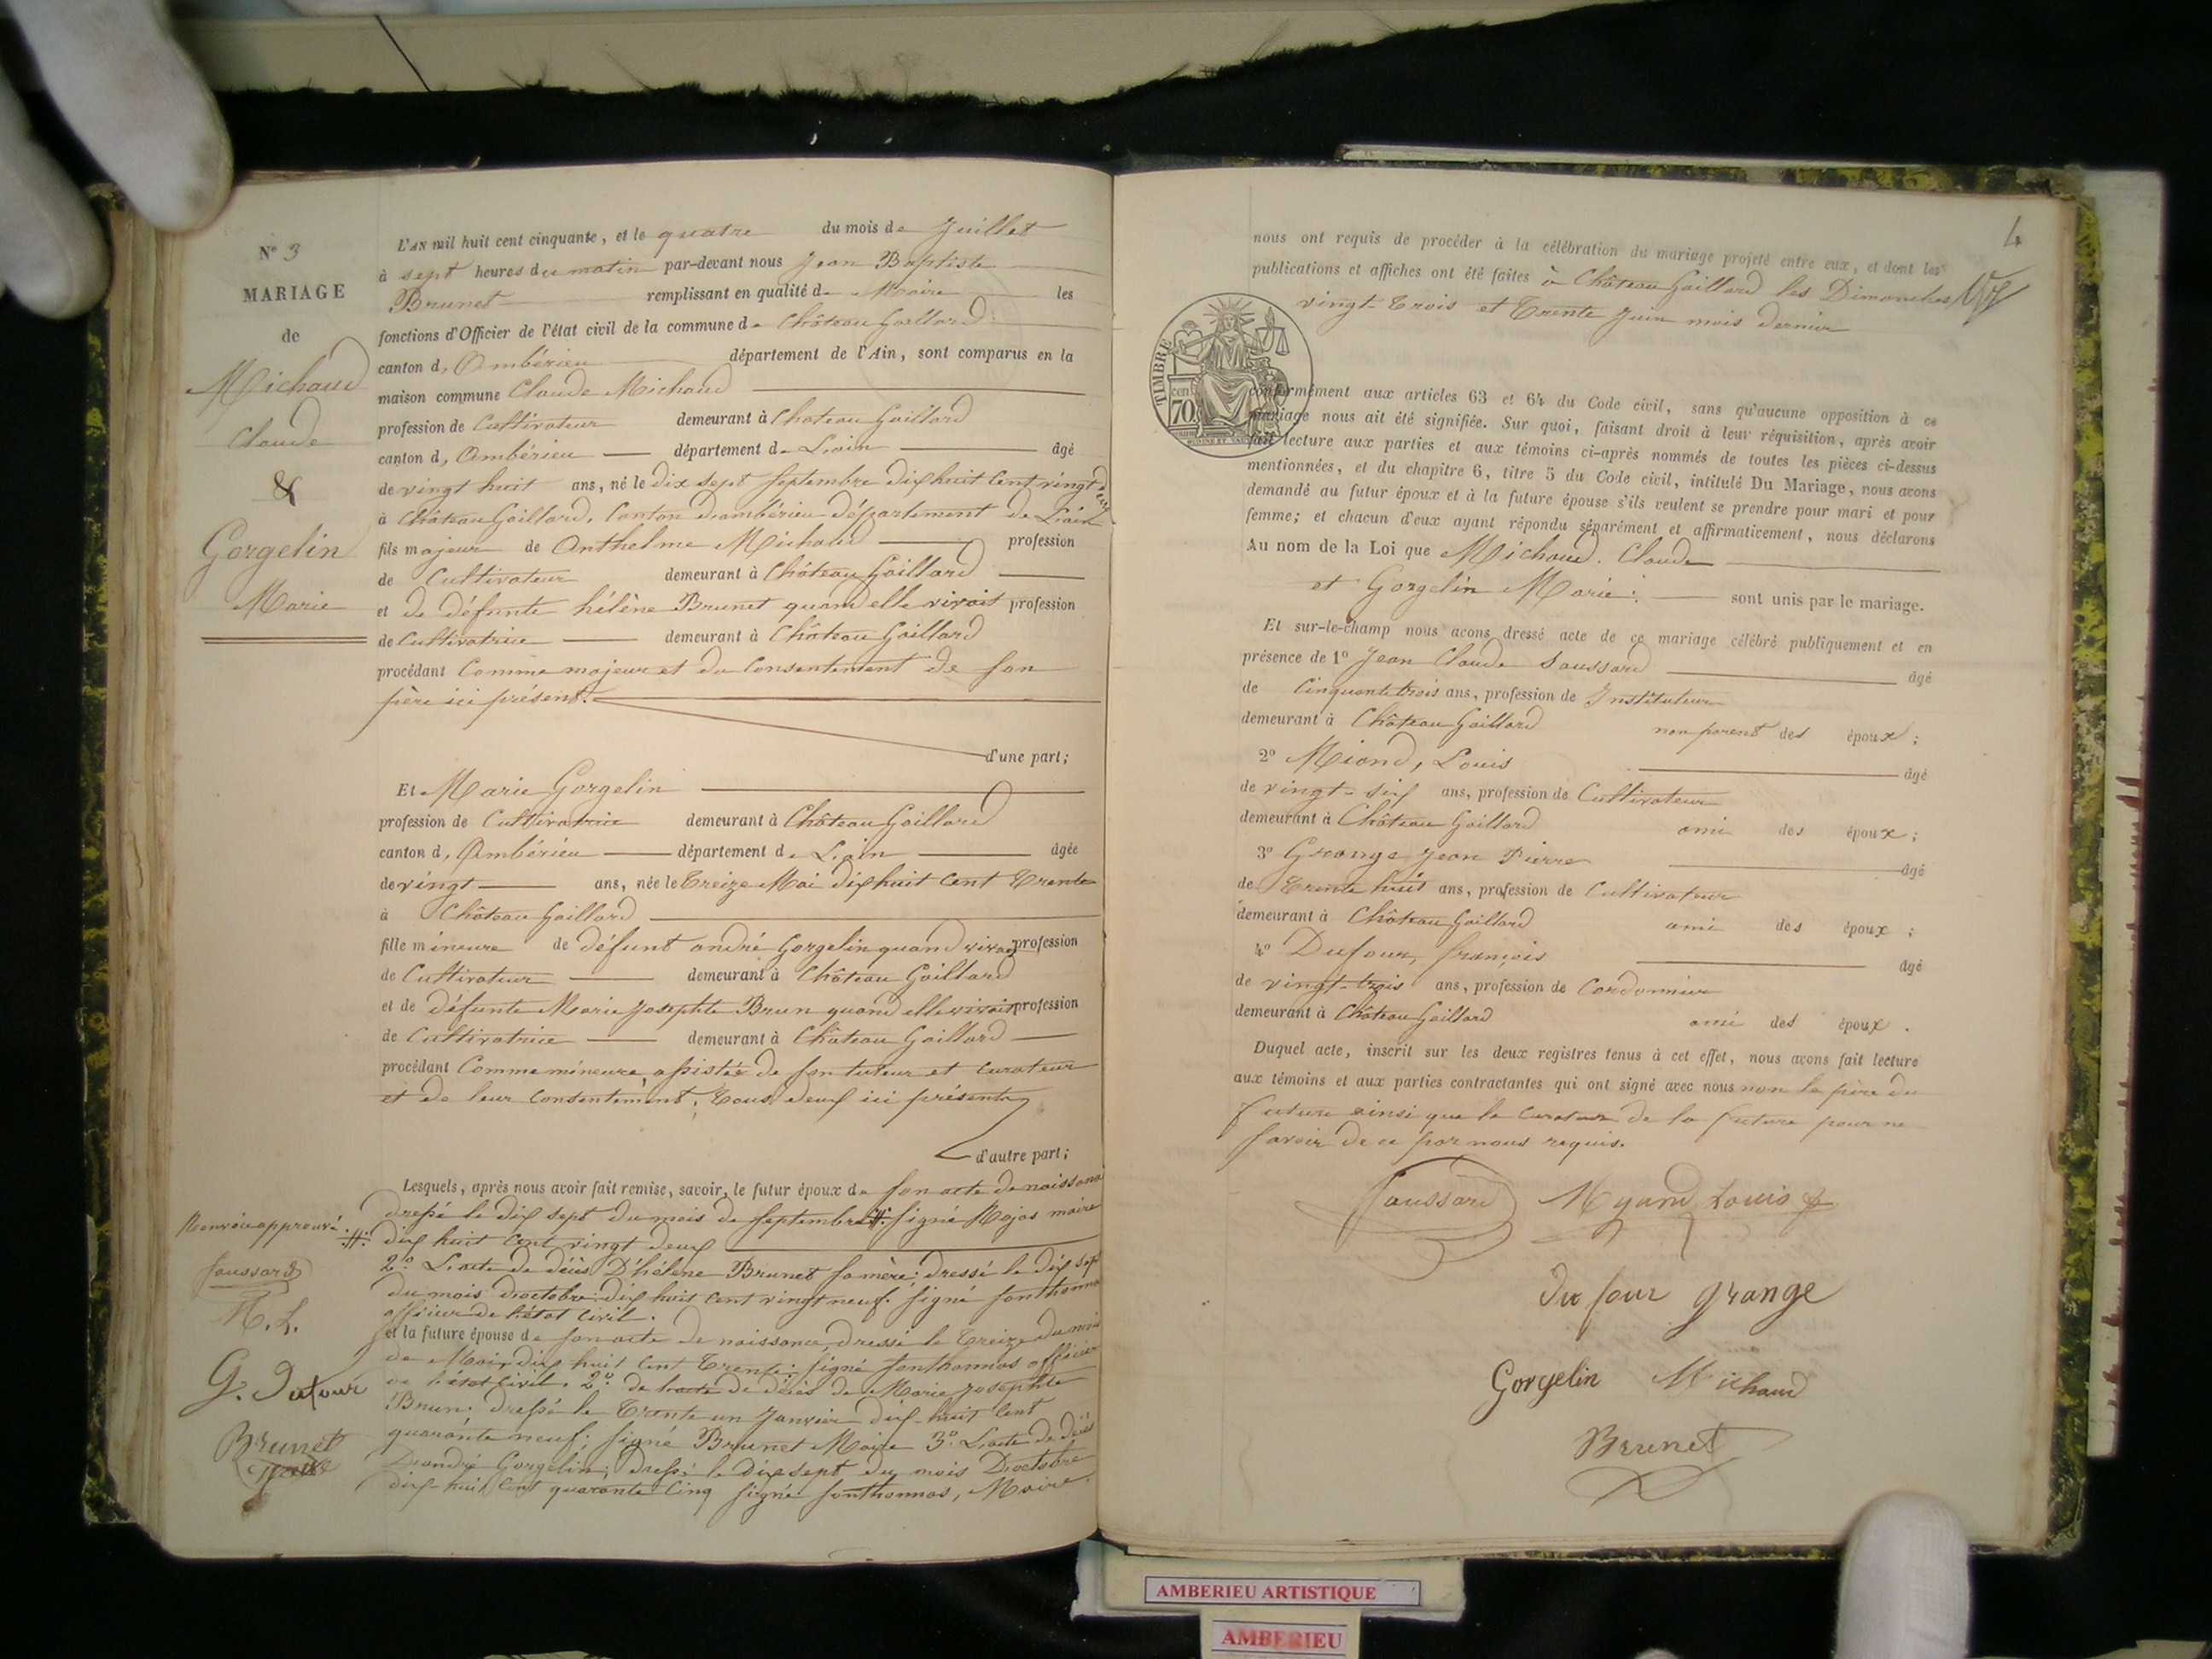 N° 3
MARIAGE
de
Michaud
Claude
&
Gorgelin
Marie
L'AN mil huit cent cinquante, et le quatre du mois de Juillet
à sept heures du matin par-devant nous Jean Baptiste
Brunet remplissant en qualité de Maire les
fonctions d'Officier de l'état civil de la commune de Château Gaillard
canton d, Ambérieu département de l'Ain, sont comparus en la
maison commune Claude Michaud
profession de Cultivateur demeurant à Chateau Gaillard
canton d, Ambérieu département de L'ain âgé
de vingt huit ans, né le dix sept Septembre dix huit Cent vingt deux
à Château Gaillard, Canton d'ambérieu département de L'ain
fils majeur de Anthelme Michaud profession
de Cultivateur demeurant à Château Gaillard
et de défunte hélène Brunet quand elle vivait profession
de Cultivatrice demeurant à Château Gaillard
procédant Comme majeur et du Consentement de son
père ici présent.
d'une part;
Et Marie Gorgelin
profession de Cultivatrice demeurant à Château Gaillard
canton d, Ambérieu département de L'ain âgée
de vingt ans, née le treize Mai dix huit Cent trente
à Château Gaillard
fille mineure de défunt andré Gorgelin quand vivait profession
de Cultivateur demeurant à Château Gaillard
et de défunte Marie Josephte Brun quand elle vivait profession
de Cultivatrice demeurant à Château Gaillard
procédant Comme mineure, assistée de son tuteur et Curateur
et de leur Consentement, tous deux ici présents
d'autre part;
Lesquels, après nous avoir fait remise, savoir, le futur époux de son acte de naissance
dressé le dix sept du mois de Septembre #. signé Mojas maire
Renvoi approuvé #. dix huit Cent vingt deux
2° L'acte de décès D'hélène Brunet sa mère; dressé le dix sept
du mois d'octobre dix huit Cent vingt neuf. signé fonthonnas
officier de l'état civil.
et la future épouse de son acte de naissance, dressé le treize du mois
de Mai dix huit Cent trente; signé fonthonnas officier
de l'état civil. 2° de l'acte de décès de Marie Josephte
Brun; dressé le trente un Janvier dix-huit Cent
quarante neuf; signé Brunet Maire 3° L'acte de décès
D'andré Gorgelin; dressé le dix sept du mois D'octobre
dix-huit Cent quarante Cinq signé fonthonnas, Maire.
Saussard
M. L.
G. Dufour
Brunet
maire
4
nous ont requis de procéder à la célébration du mariage projeté entre eux, et dont les
publications et affiches ont été faites à Château Gaillard les Dimanches
vingt-trois et trente Juin mois dernier
TIMBRE
cen
70
conformément aux articles 63 et 64 du Code civil, sans qu'aucune opposition à ce
mariage nous ait été signifiée. Sur quoi, faisant droit à leur réquisition, après avoir
fait lecture aux parties et aux témoins ci-après nommés de toutes les pièces ci-dessus
mentionnées, et du chapitre 6, titre 5 du Code civil, intitulé Du Mariage, nous avons
demandé au futur époux et à la future épouse s'ils veulent se prendre pour mari et pour
femme; et chacun d'eux ayant répondu séparément et affirmativement, nous déclarons
Au nom de la Loi que Michaud. Claude
et Gorgelin Marie: sont unis par le mariage.
Et sur-le-champ nous avons dressé acte de ce mariage célébré publiquement et en
présence de 1° Jean Claude Saussard âgé
de Cinquante trois ans, profession de Instituteur
demeurant à Château Gaillard non parent des époux;
2° Miond, Louis âgé
de vingt-six ans, profession de Cultivateur
demeurant à Château Gaillard ami des époux;
3° Grange Jean Pierre âgé
de trente huit ans, profession de Cultivateur
demeurant à Château Gaillard ami des époux;
4° Dufour, françois âgé
de vingt-trois ans, profession de Cordonnier
demeurant à Château Gaillard ami des époux.
Duquel acte, inscrit sur les deux registres tenus à cet effet, nous avons fait lecture
aux témoins et aux parties contractantes qui ont signé avec nous non le père du
futur ainsi que le Curateur de la future pour ne
savoir de ce par nous requis.
Saussard Myand Louis
Dufour grange
Gorgelin Michaud
Brunet
AMBERIEU ARTISTIQUE
AMBERIEU